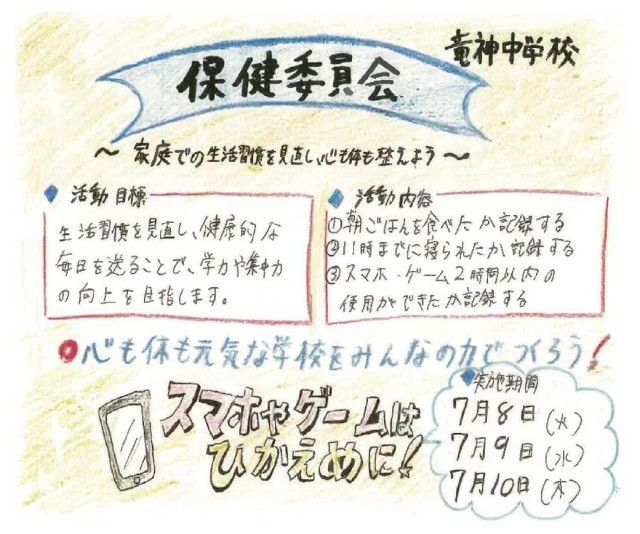 竜神中学校
保健委員会
〜 家庭での生活習慣を見直し心も体も整えよう 〜
活動目標
生活習慣を見直し、健康的な
毎日を送ることで、学力や集中力
の向上を目指します。
活動内容
①朝ごはんを食べたか記録する
②11時までに寝られたか記録する
③スマホ・ゲーム2時間以内の
使用ができたか記録する
心も体も元気な学校をみんなの力でつくろう!
スマホやゲームは
ひかえめに!
実施期間
7月8日(火)
7月9日(水)
7月10日(木)